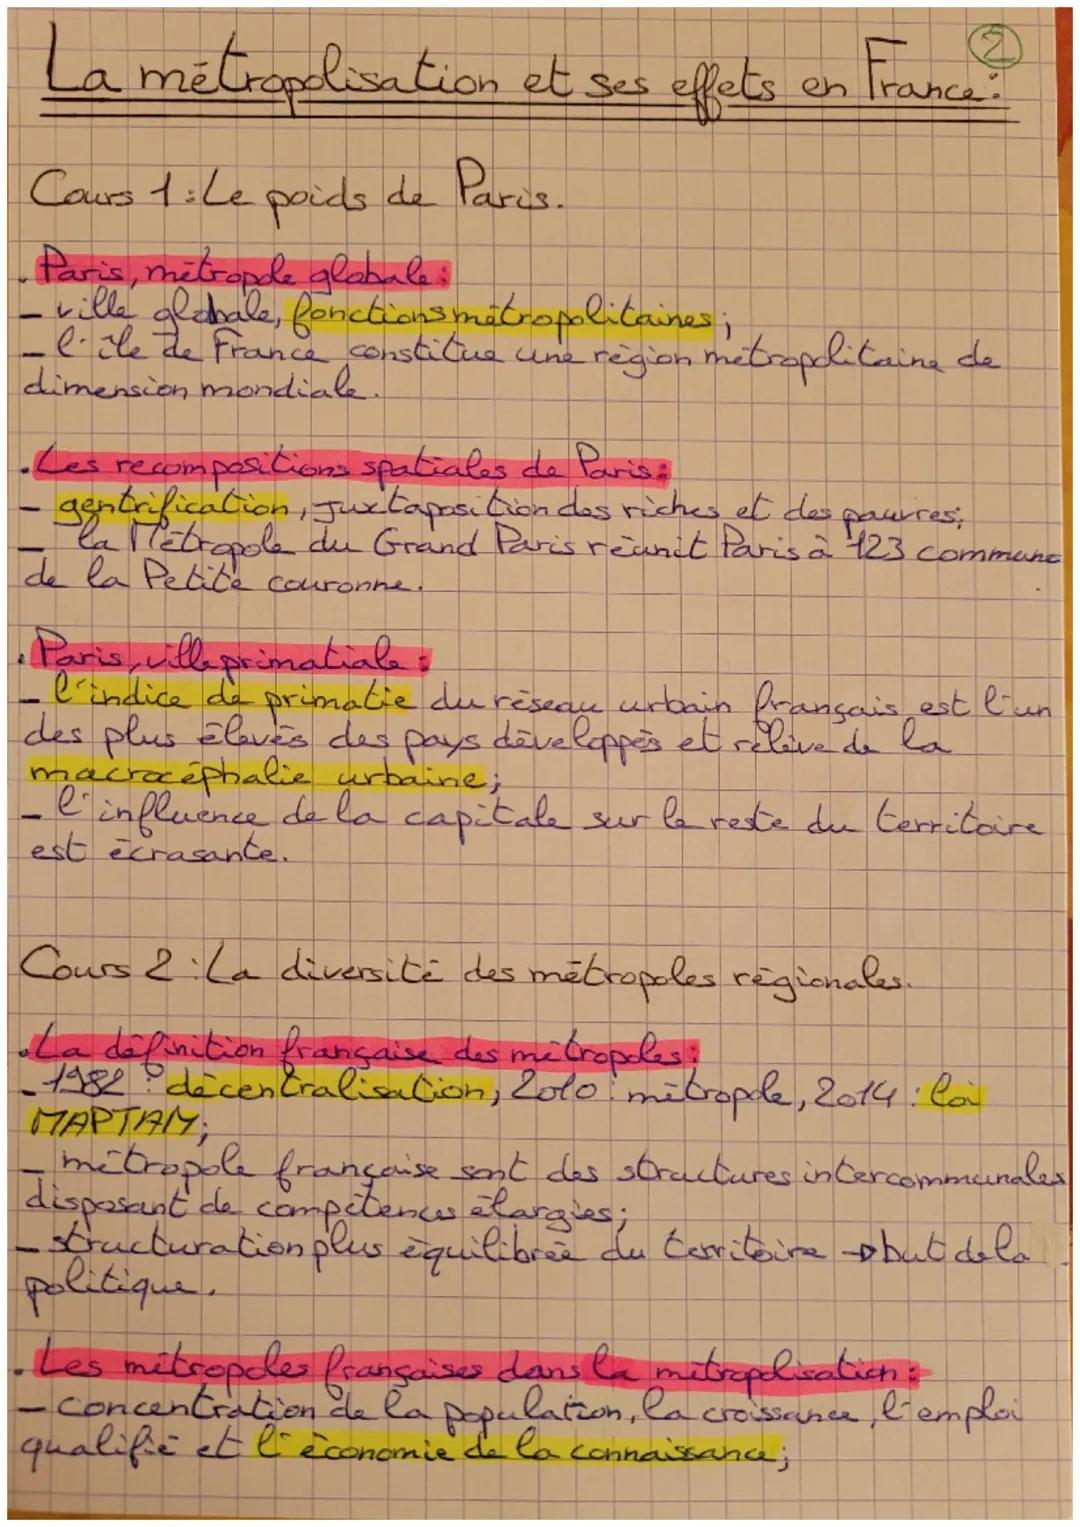 2
La métropolisation et ses effets en France:
Cours 1: Le poids de Paris.
. Paris, métropole globale:
- ville globale, fonctions métropolitaines;
- l'île de France constitue une région métropolitaine de
dimension mondiale.
. Les recompositions spatiales de Paris:
- gentrification, juxtaposition des riches et des pauvres;
- la Métropole du Grand Paris réunit Paris à 123 commune
de la Petite couronne.
. Paris, ville primatiale:
- l'indice de primatie du réseau urbain français est l'un
des plus élevés des pays développés et relève de la
macrocéphalie urbaine;
- l'influence de la capitale sur le reste du territoire
est écrasante.
Cours 2: La diversité des métropoles régionales.
. La définition française des métropoles:
- 1982: décentralisation, 2010: métropole, 2014: loi
MAPTAM;
- métropole française sont des structures intercommunales
disposant de compétences élargies;
- structuration plus équilibrée du territoire → but de la
politique.
. Les métropoles françaises dans la métropolisation:
- concentration de la population, la croissance, l'emploi
qualifié et l'économie de la connaissance;